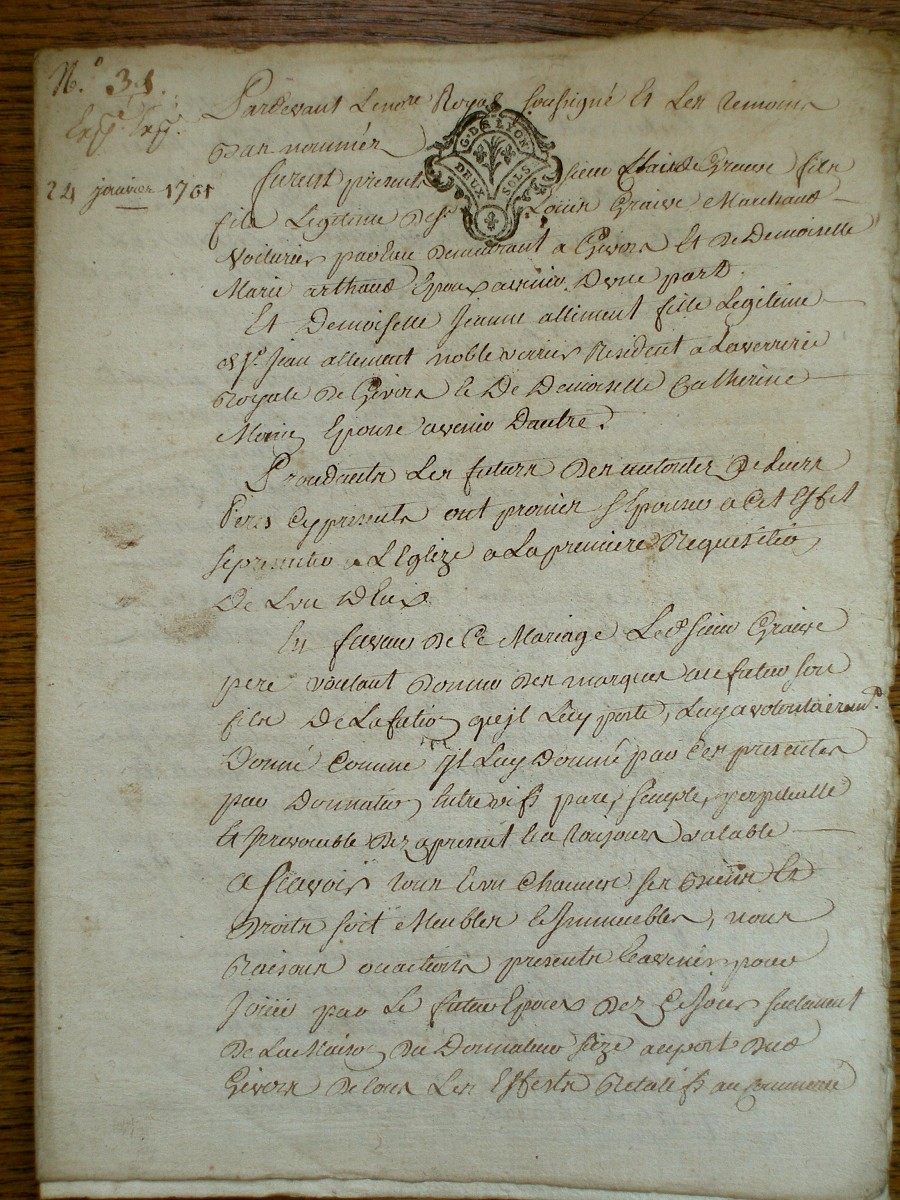 N.° 31.
24 janvier 1761
Pardevant Le nore Royal soussigné Et Les temoins
Bas nommés
G. DE LYON
DEUX SOLS
furent presents sieur Graive fils
fils Legitime de Sr Louis Graive Marchand
Voiturier par Eau demeurant a Givors Et de Demoiselle
Marie arthaud Epoux avenir D'une part.
Et Demoiselle Jeanne alliment fille Legitime
de Sr. Jean allement noble verrier Resident a La verrerie
Royale de Givors Et De Demoiselle Catherine
Epouse avenir D'autre.
Procedants Les futurs des autorités de Leurs
Peres cy presents ont promis s'Epouser a Cet Effet
se presenter a L'Eglize a La premiere Requisition
De L'un D'Eux
En faveur de Ce Mariage Le dt sieur Graive
pere voulant Donner des marques au futur son
fils De L'affection qu'jl Luy porte, Luy a volontairemt.
Donné Comme jl Luy Donne par Ces presentes
par Donnation Entre vifs pure, simple, perpetuelle
Et jrrevocable dez apresent Et a toujours valable
a Scavoir tous Et un Chacuns ses Biens Et
Droits soit Meubles Et Immeubles, noms
Raisons Et actions presents Et avenir pour
Jouir par Le futur Epoux dez Ce Jour
De La Maison du Donnateur size au port dud
Givors De tous Les Effects Relatifs au Commerce